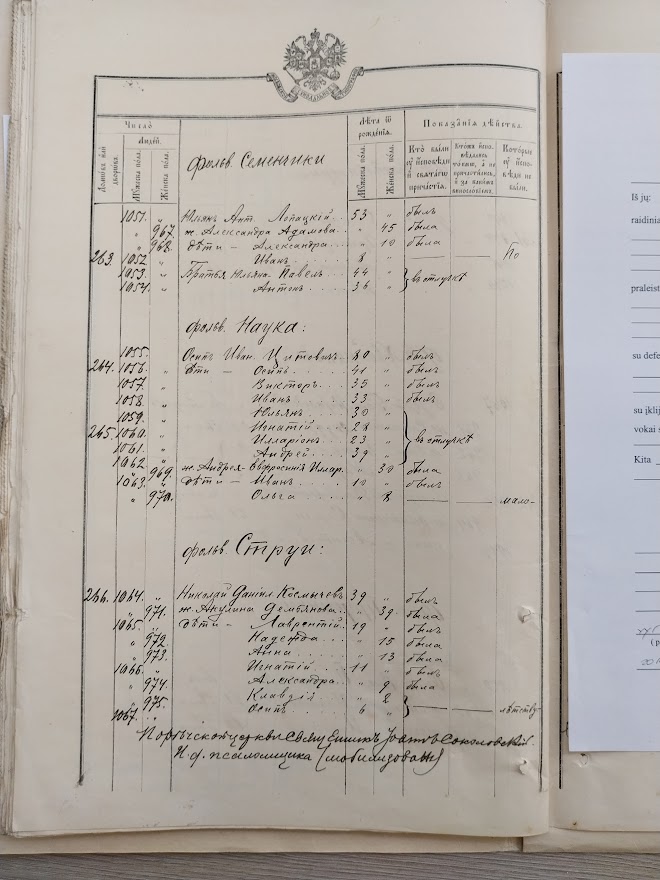 Число
Людей.
Домовъ или дворовъ.
Мужеска пола.
Женска пола.
Лѣта ѿ рожденія.
Мужеска пола.
Женска пола.
Показанія дѣйства.
Кто были у исповѣди и святаго причастія.
Которые у исповѣди не были.
фольв. Семенчики
1051. „ Юльян Ант. Лопацкій 53 „ былъ
„ 967. ж. Александра Адамова „ 45 была
„ 968. дѣти – Александра „ 10 была
263. 1052 „ Иванъ 8 „ По
1053. „ Братья Юльяна Павелъ 44 „ въ отлучкѣ
1054. „ Антонъ 36 „
фольв. Наука:
1055. Осипъ Иван. Цитовичъ 80 „ былъ
264. 1056. „ дѣти – Осипъ 41 „ былъ
1057. „ Викторъ 35 „ былъ
1058 „ Иванъ 33 „ былъ
1059. „ Юльянъ 30 „
265. 1060. „ Игнатій 28 „ въ отлучкѣ
1061. „ Илларіонъ 23 „
1062. „ Андрей 39 „
„ 969. ж. Андрея Евфросинія Иллар. „ 30 была
1063. „ дѣти – Иванъ 10 „ былъ
„ 970. Ольга „ 8 мало-
фольв. Струи:
266. 1064. „ Николай Даніил. 39 „ былъ
„ 971. ж. Акулина Демьянова „ 39 была
1065. „ дѣти – Лаврентій 19 „ былъ
„ 972. Надежда „ 15 была
„ 973. Анна „ 13 была
1066. „ Игнатій 11 „ былъ
„ 974. Александра „ 9 была
„ 975. Клавдія „ 2
1067. „ Осипъ 6 „ лѣтству
церкви Священникъ Іоаннъ Соколовскій.
И. ф. псаломщика (мобилизованъ)
Iš jų:
praleist
su defe
su įklij
vokai s
Kita